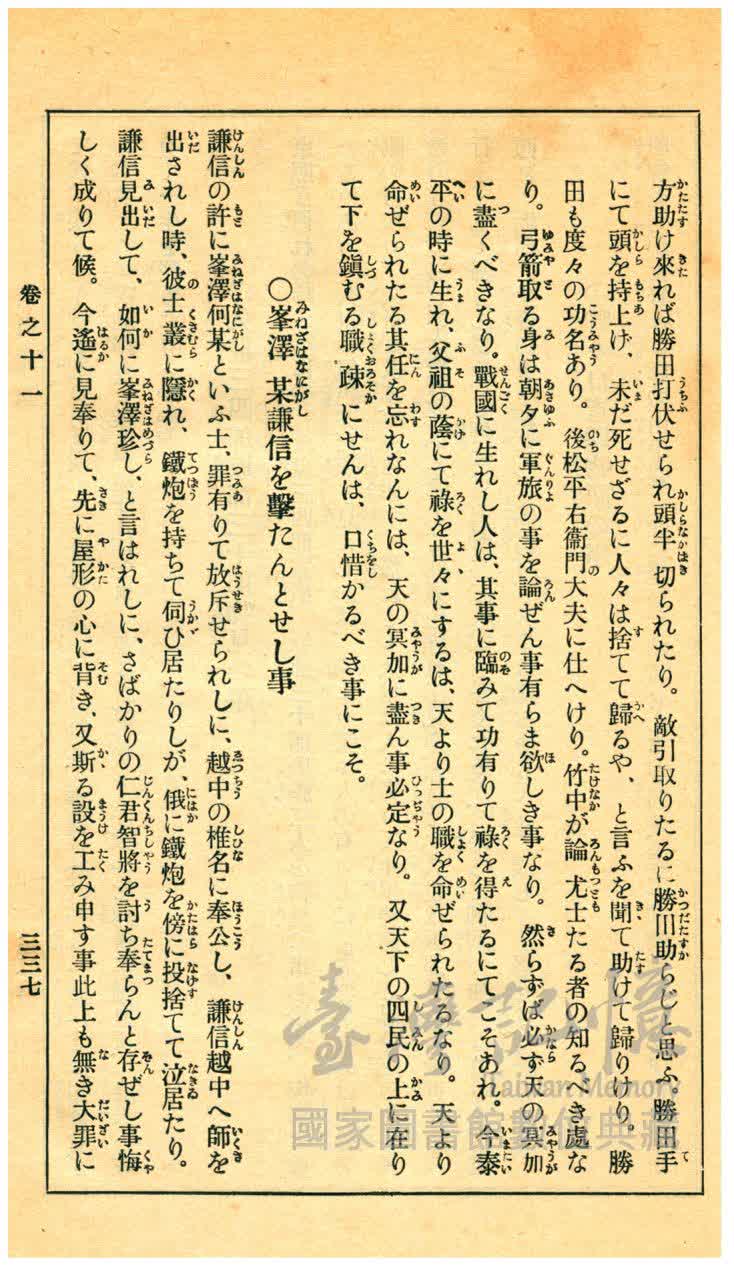 方助け來れば勝田打伏せられ頭半切られたり。敵引取りたるに勝川助らじと思ふ。勝田手
にて頭を持上げ、未だ死せざるに人々は捨てて歸るや、と言ふを聞て助けて歸りけり。勝
田も度々の功名あり。後松平右衞門大夫に仕へけり。竹中が論尤士たる者の知るべき處な
り。弓箭取る身は朝夕に軍旅の事を論ぜん事有らま欲しき事なり。然らずば必ず天の冥加
に盡くべきなり。戰國に生れし人は、其事に臨みて功有りて祿を得たるにてこそあれ。今泰
平の時に生れ、父祖の蔭にて祿を世々にするは、天より士の職を命ぜられたるなり。天より
命ぜられたる其任を忘れなんには、天の冥加に盡ん事必定なり。又天下の四民の上に在り
て下を鎭むる職疎にせんは、口惜かるべき事にこそ。
○峯澤某謙信を擊たんとせし事
謙信の許に峯澤何某といふ士、罪有りて放斥せられしに、越中の椎名に奉公し、謙信越中へ師を
出されし時、彼士叢に隱れ、鐵炮を持ちて伺ひ居たりしが、俄に鐵炮を傍に投捨てて泣居たり。
謙信見出して、如何に峯澤珍し、と言はれしに、さばかりの仁君智將を討ち奉らんと存ぜし事悔
しく成りて候。今遙に見奉りて、先に屋形の心に背き、又斯る設を工み申す事此上も無き大罪に
卷之十一
三三七
臺灣記憶
Taiwan Memory
國家圖書館數位典藏